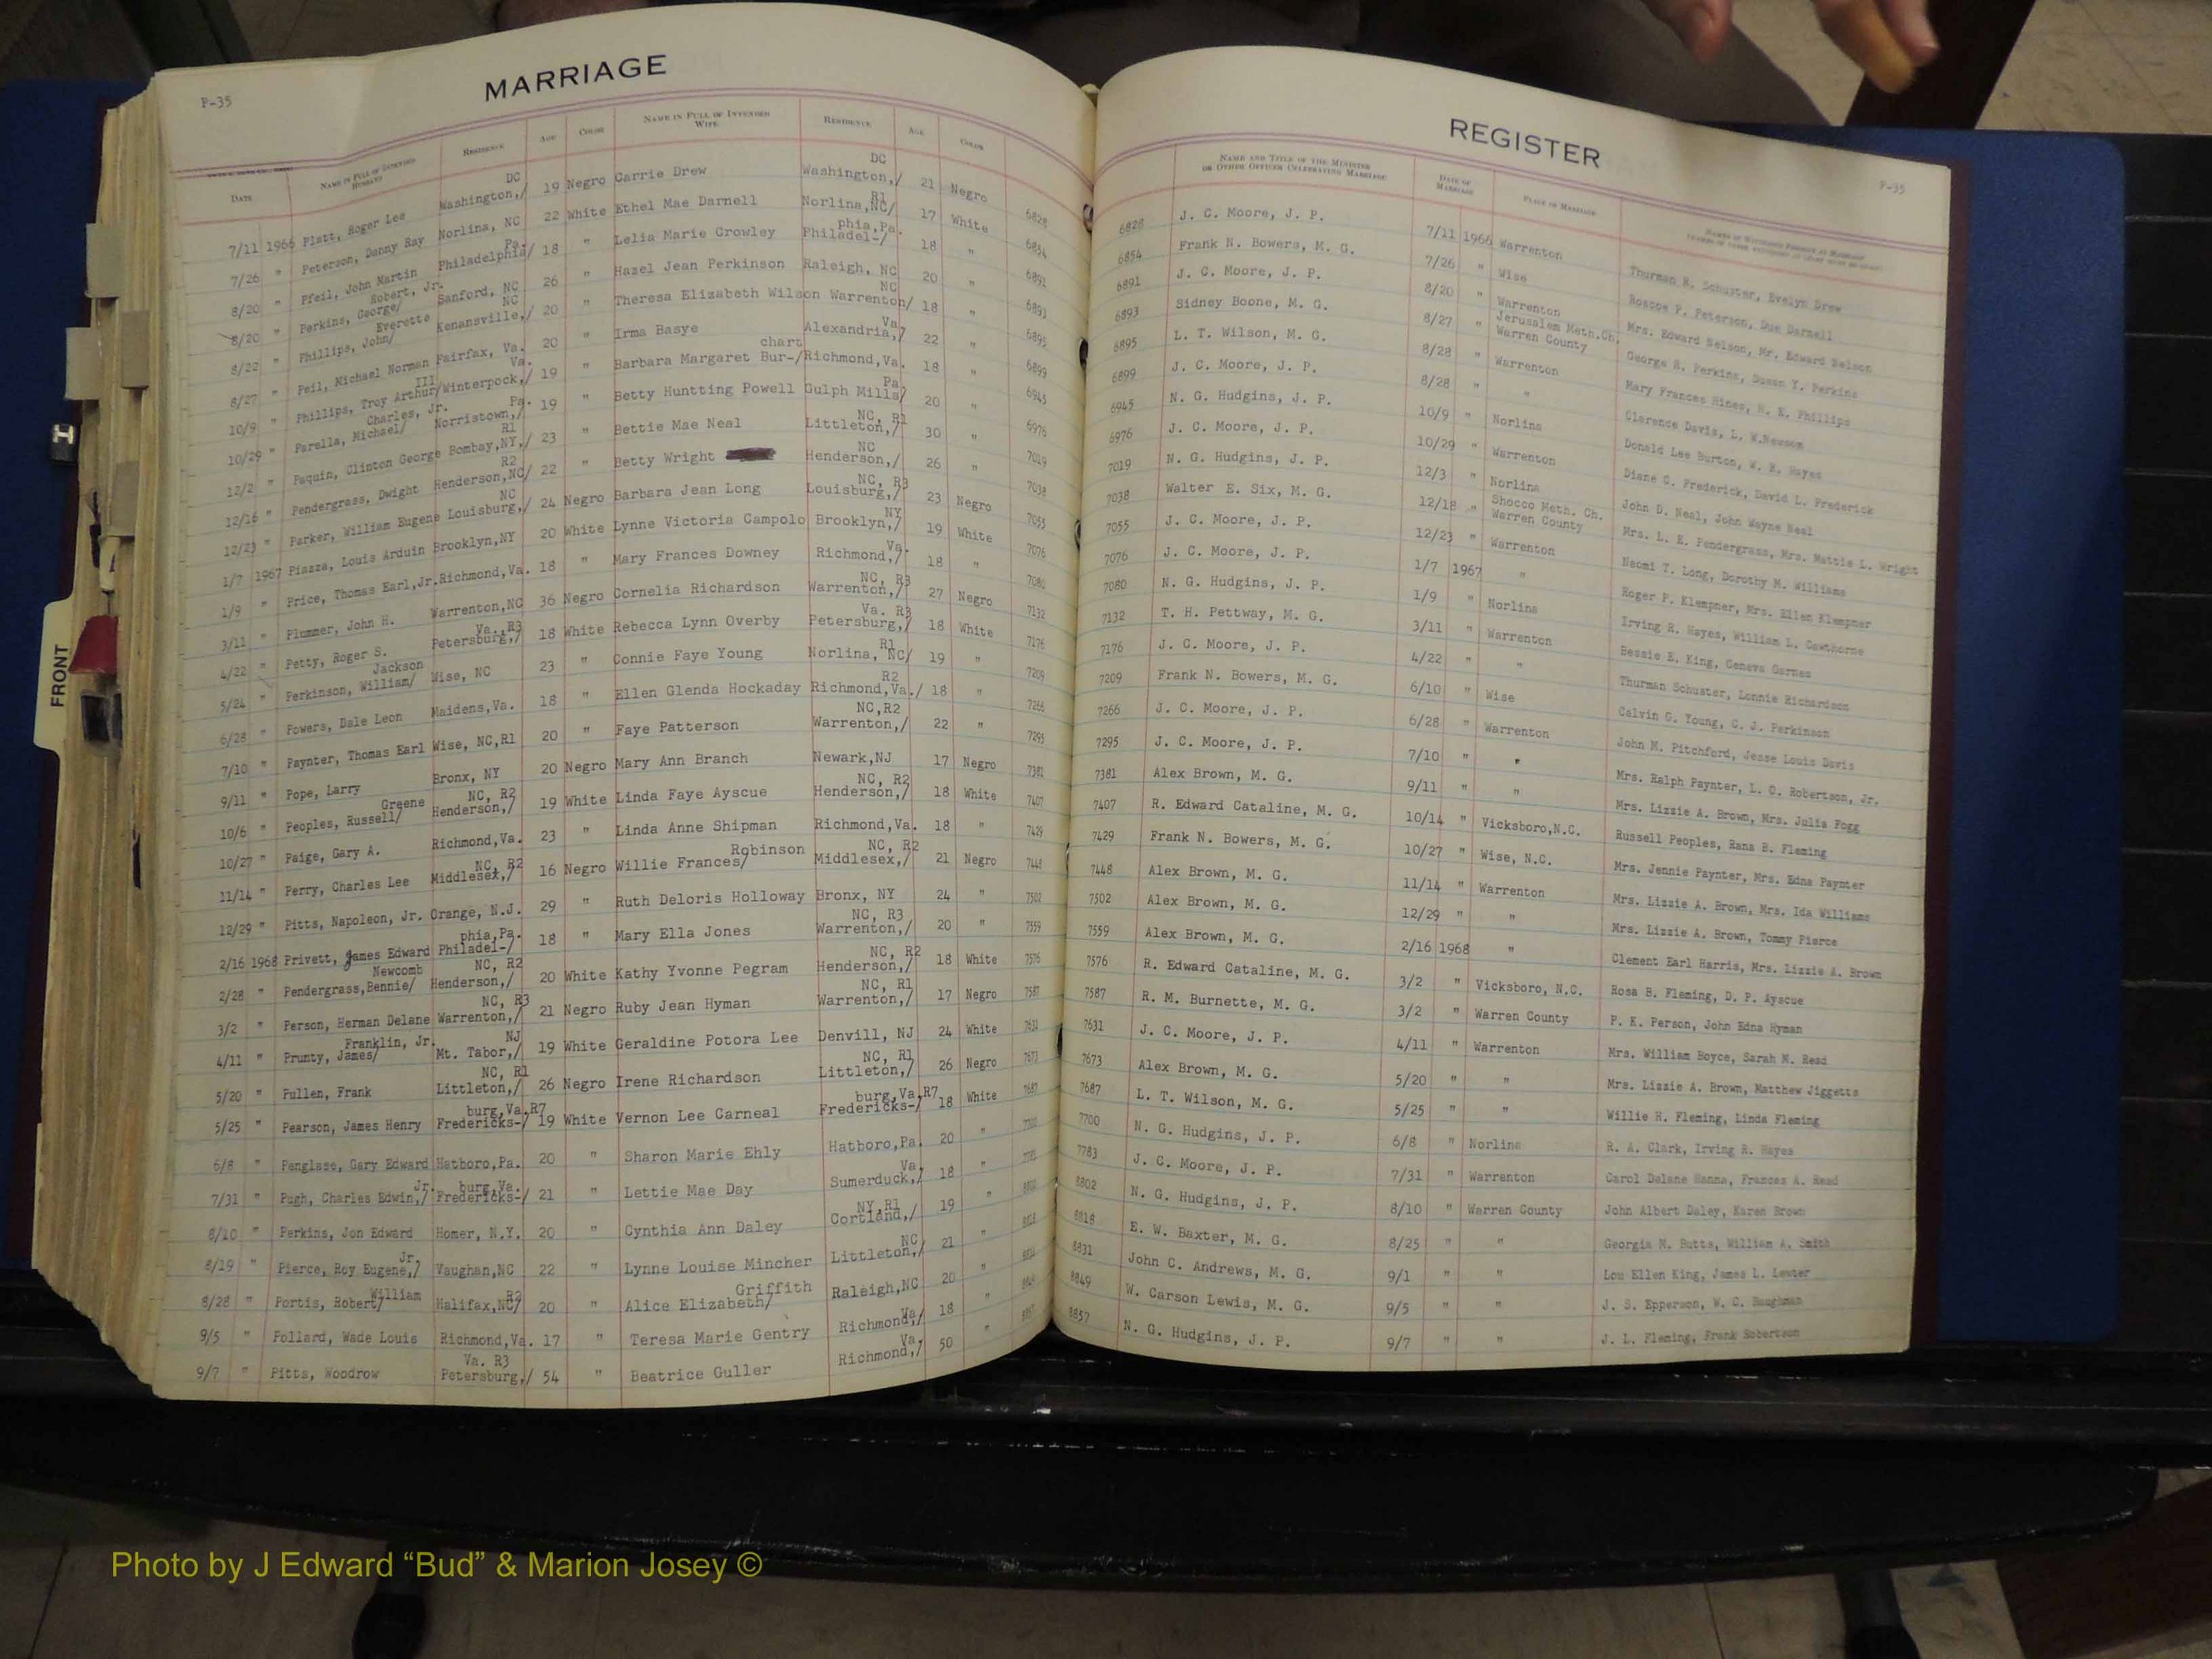 P-35 MARRIAGE
DATE NAME IN FULL OF INTENDED HUSBAND RESIDENCE AGE COLOR NAME IN FULL OF INTENDED WIFE RESIDENCE AGE COLOR
7/11 1966 Platt, Roger Lee Washington,/ DC 19 Negro Carrie Drew Washington,/ DC 21 Negro 6828
7/26 " Peterson, Danny Ray Norlina, NC 22 White Ethel Mae Darnell Norlina,NC/ R1 17 White 6854
8/20 " Pfeil, John Martin Philadelphia/ Pa. 18 " Lelia Marie Crowley Philadel-/ phia,Pa. 18 " 6891
8/20 " Perkins, George/ Robert, Jr. Sanford, NC 26 " Hazel Jean Perkinson Raleigh, NC 20 " 6893
8/22 " Phillips, John/ Everette Kenansville,/ NC 20 " Theresa Elizabeth Wilson Warrenton/ NC 18 " 6895
8/27 " Peil, Michael Norman Fairfax, Va. 20 " Irma Basye Alexandria,/ Va. 22 " 6899
10/9 " Phillips, Troy Arthur/ III Winterpock,/ Va. 19 " Barbara Margaret Bur-/ chart Richmond,Va. 18 " 6945
10/29 " Parella, Michael/ Charles, Jr. Norristown,/ Pa. 19 " Betty Huntting Powell Gulph Mills/ Pa. 20 " 6976
12/2 " Paquin, Clinton George Bombay,NY,/ R1 23 " Bettie Mae Neal Littleton,/ NC, R1 30 " 7019
12/16 " Pendergrass, Dwight Henderson,NC/ R2 22 " Betty Wright Henderson,/ NC 26 " 7038
12/23 " Parker, William Eugene Louisburg,/ NC 24 Negro Barbara Jean Long Louisburg,/ NC, R3 23 Negro 7055
1/7 1967 Piazza, Louis Arduin Brooklyn,NY 20 White Lynne Victoria Campolo Brooklyn,/ NY 19 White 7076
1/9 " Price, Thomas Earl,Jr. Richmond,Va. 18 " Mary Frances Downey Richmond,/ Va. 18 " 7080
3/11 " Plummer, John H. Warrenton,NC 36 Negro Cornelia Richardson Warrenton,/ NC, R3 27 Negro 7132
4/22 " Petty, Roger S. Petersburg,/ Va.,R3 18 White Rebecca Lynn Overby Petersburg,/ Va. R3 18 White 7176
5/24 " Perkinson, William/ Jackson Wise, NC 23 " Connie Faye Young Norlina, NC/ R1 19 " 7209
6/28 " Powers, Dale Leon Maidens,Va. 18 " Ellen Glenda Hockaday Richmond,Va./ R2 18 " 7266
7/10 " Paynter, Thomas Earl Wise, NC,R1 20 " Faye Patterson Warrenton,/ NC,R2 22 " 7295
9/11 " Pope, Larry Bronx, NY 20 Negro Mary Ann Branch Newark,NJ 17 Negro 7381
10/6 " Peoples, Russell/ Greene Henderson,/ NC, R2 19 White Linda Faye Ayscue Henderson,/ NC, R2 18 White 7407
10/27 " Paige, Gary A. Richmond,Va. 23 " Linda Anne Shipman Richmond,Va. 18 " 7429
11/14 " Perry, Charles Lee Middlesex,/ NC, R2 16 Negro Willie Frances/ Robinson Middlesex,/ NC, R2 21 Negro 7448
12/29 " Pitts, Napoleon, Jr. Orange, N.J. 29 " Ruth Deloris Holloway Bronx, NY 24 " 7502
2/16 1968 Privett, James Edward Philadel-/ phia,Pa. 18 " Mary Ella Jones Warrenton,/ NC, R3 20 " 7559
2/28 " Pendergrass,Bennie/ Newcomb Henderson,/ NC, R2 20 White Kathy Yvonne Pegram Henderson,/ NC, R2 18 White 7576
3/2 " Person, Herman Delane Warrenton,/ NC, R3 21 Negro Ruby Jean Hyman Warrenton,/ NC, R1 17 Negro 7587
4/11 " Prunty, James/ Franklin, Jr. Mt. Tabor,/ NJ 19 White Geraldine Potora Lee Denvill, NJ 24 White 7631
5/20 " Pullen, Frank Littleton,/ NC, R1 26 Negro Irene Richardson Littleton,/ NC, R1 26 Negro 7673
5/25 " Pearson, James Henry Fredericks-/ burg,Va,R7 19 White Vernon Lee Carneal Fredericks-/ burg,Va,R7 18 White 7687
6/8 " Penglase, Gary Edward Hatboro,Pa. 20 " Sharon Marie Ehly Hatboro,Pa. 20 "
7/31 " Pugh, Charles Edwin,/ Jr. Fredericks-/ burg,Va. 21 " Lettie Mae Day Sumerduck,/ Va. 18 "
8/10 " Perkins, Jon Edward Homer, N.Y. 20 " Cynthia Ann Daley Cortland,/ NY,R1 19 "
8/19 " Pierce, Roy Eugene,/ Jr. Vaughan,NC 22 " Lynne Louise Mincher Littleton,/ NC 21 "
8/28 " Portis, Robert/ William Halifax,NC/ R2 20 " Alice Elizabeth/ Griffith Raleigh,NC 20 "
9/5 " Pollard, Wade Louis Richmond,Va. 17 " Teresa Marie Gentry Richmond,/ Va. 18 "
9/7 " Pitts, Woodrow Petersburg,/ Va. R3 54 " Beatrice Guller Richmond,/ Va. 50 "
REGISTER P-35
NAME AND TITLE OF THE MINISTER OR OTHER OFFICER CELEBRATING MARRIAGE DATE OF MARRIAGE PLACE OF MARRIAGE
6828 J. C. Moore, J. P. 7/11 1966 Warrenton Thurman R. Schuster, Evelyn Drew
6854 Frank N. Bowers, M. G. 7/26 " Wise Roscoe P. Peterson, Sue Darnell
6891 J. C. Moore, J. P. 8/20 " Warrenton Mrs. Edward Nelson, Mr. Edward Nelson
6893 Sidney Boone, M. G. 8/27 " Jerusalem Meth.Ch. Warren County George R. Perkins, Susan Y. Perkins
6895 L. T. Wilson, M. G. 8/28 " Warrenton Mary Frances Hines, H. E. Phillips
6899 J. C. Moore, J. P. 8/28 " " Clarence Davis, L. W.Newsom
6945 N. G. Hudgins, J. P. 10/9 " Norlina Donald Lee Burton, W. E. Hayes
6976 J. C. Moore, J. P. 10/29 " Warrenton Diane C. Frederick, David L. Frederick
7019 N. G. Hudgins, J. P. 12/3 " Norlina John D. Neal, John Wayne Neal
7038 Walter E. Six, M. G. 12/18 " Shocco Meth. Ch. Warren County Mrs. L. E. Pendergrass, Mrs. Mattie L. Wright
7055 J. C. Moore, J. P. 12/23 " Warrenton Naomi T. Long, Dorothy M. Williams
7076 J. C. Moore, J. P. 1/7 1967 " Roger P. Klempner, Mrs. Ellen Klempner
7080 N. G. Hudgins, J. P. 1/9 " Norlina Irving R. Hayes, William L. Cawthorne
7132 T. H. Pettway, M. G. 3/11 " Warrenton Bessie E. King, Geneva Garnes
7176 J. C. Moore, J. P. 4/22 " " Thurman Schuster, Lonnie Richardson
7209 Frank N. Bowers, M. G. 6/10 " Wise Calvin G. Young, C. J. Perkinson
7266 J. C. Moore, J. P. 6/28 " Warrenton John M. Pitchford, Jesse Louis Davis
7295 J. C. Moore, J. P. 7/10 " " Mrs. Ralph Paynter, L. O. Robertson, Jr.
7381 Alex Brown, M. G. 9/11 " " Mrs. Lizzie A. Brown, Mrs. Julia Fogg
7407 R. Edward Cataline, M. G. 10/14 " Vicksboro,N.C. Russell Peoples, Rana B. Fleming
7429 Frank N. Bowers, M. G. 10/27 " Wise, N.C. Mrs. Jennie Paynter, Mrs. Edna Paynter
7448 Alex Brown, M. G. 11/14 " Warrenton Mrs. Lizzie A. Brown, Mrs. Ida Williams
7502 Alex Brown, M. G. 12/29 " " Mrs. Lizzie A. Brown, Tommy Pierce
7559 Alex Brown, M. G. 2/16 1968 " Clement Earl Harris, Mrs. Lizzie A. Brown
7576 R. Edward Cataline, M. G. 3/2 " Vicksboro, N.C. Rosa B. Fleming, D. P. Ayscue
7587 R. M. Burnette, M. G. 3/2 " Warren County P. K. Person, John Edna Hyman
7631 J. C. Moore, J. P. 4/11 " Warrenton Mrs. William Boyce, Sarah N. Read
7673 Alex Brown, M. G. 5/20 " " Mrs. Lizzie A. Brown, Matthew Jiggetts
7687 L. T. Wilson, M. G. 5/25 " " Willie H. Fleming, Linda Fleming
7700 N. G. Hudgins, J. P. 6/8 " Norlina R. A. Clark, Irving R. Hayes
7783 J. C. Moore, J. P. 7/31 " Warrenton Carol Delane Hanna, Frances A. Read
8802 N. G. Hudgins, J. P. 8/10 " Warren County John Albert Daley, Karen Brown
8818 E. W. Baxter, M. G. 8/25 " " Georgia M. Butts, William A. Smith
8831 John C. Andrews, M. G. 9/1 " " Lou Ellen King, James L. Lewter
8849 W. Carson Lewis, M. G. 9/5 " " J. S. Epperson, W. C. Baughman
8857 N. G. Hudgins, J. P. 9/7 " " J. L. Fleming, Frank Robertson
FRONT
Photo by J Edward “Bud” & Marion Josey ©